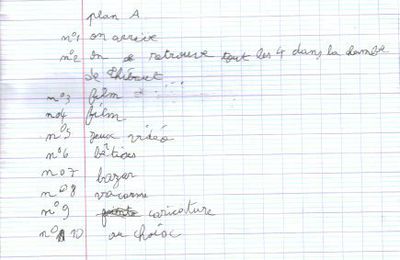 plan A
n°1 on arrive
n°2 on se retrouve tout les 4 dans la chambre
de Thibaut
n°3 film
n°4 film
n°5 jeux vidéo
n°6 bêtises
n°7 bazar
n°8 vacarme
n°9 caricature
n°10 au choix